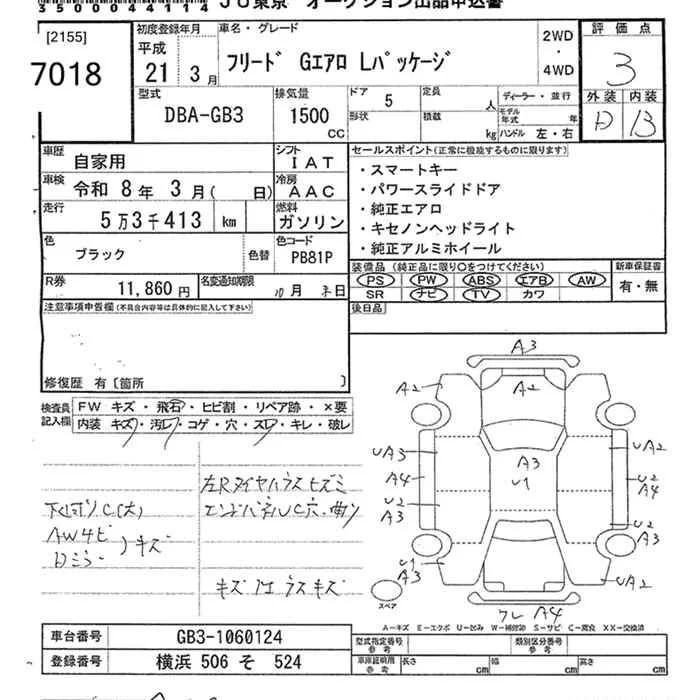 35000441 14
JU東京 オークション出品申込書
[2155]
7018
初度登録年月
平成
21 3月
車名・グレード
フリード Gエアロ Lパッケージ
2WD
・
4WD
評価点
3
外装 内装
D B
型式
DBA-GB3
排気量
1500
CC
ドア 5
形状
定員 人
積載 kg
ディーラー・並行
モデル年式 年
ハンドル 左・右
車歴 自家用
シフト IAT
車検 令和 8年 3月( 日)
冷房 AAC
走行 5万3千413 km
燃料 ガソリン
色 ブラック
色替
色コード PB81P
R券 11,860円
名変通知期限 月 日
セールスポイント(正常に機能するものに限ります)
・スマートキー
・パワースライドドア
・純正エアロ
・キセノンヘッドライト
・純正アルミホイール
装備品 (純正品に限り○をつけてください)
PS PW ABS エアB AW
SR ナビ TV カワ
新車保証書
有・無
後日品
注意事項申告欄(不具合内容等は具体的に記入して下さい)
修復歴 有〔箇所 〕
検査員記入欄
FW キズ・飛石・ヒビ割・リペア跡・×要
内装 キズ・汚レ・コゲ・穴・スレ・キレ・破レ
AW4ビ
キズ
A3
A2 A2
UA3 A3 U1 UA2
A4 U2 A4
U2 A3 U2 A3
U1 A3 UA2
ワレ A4
スペア
A―キズ E―エクボ U―凹み W―補修跡 S―サビ C―腐食 XX―交換済
車台番号 GB3-1060124
登録番号 横浜 506 そ 524
型式指定番号 参考
類別区分番号 参考
車庫証明用 参考
長さ cm
幅 cm
高さ cm